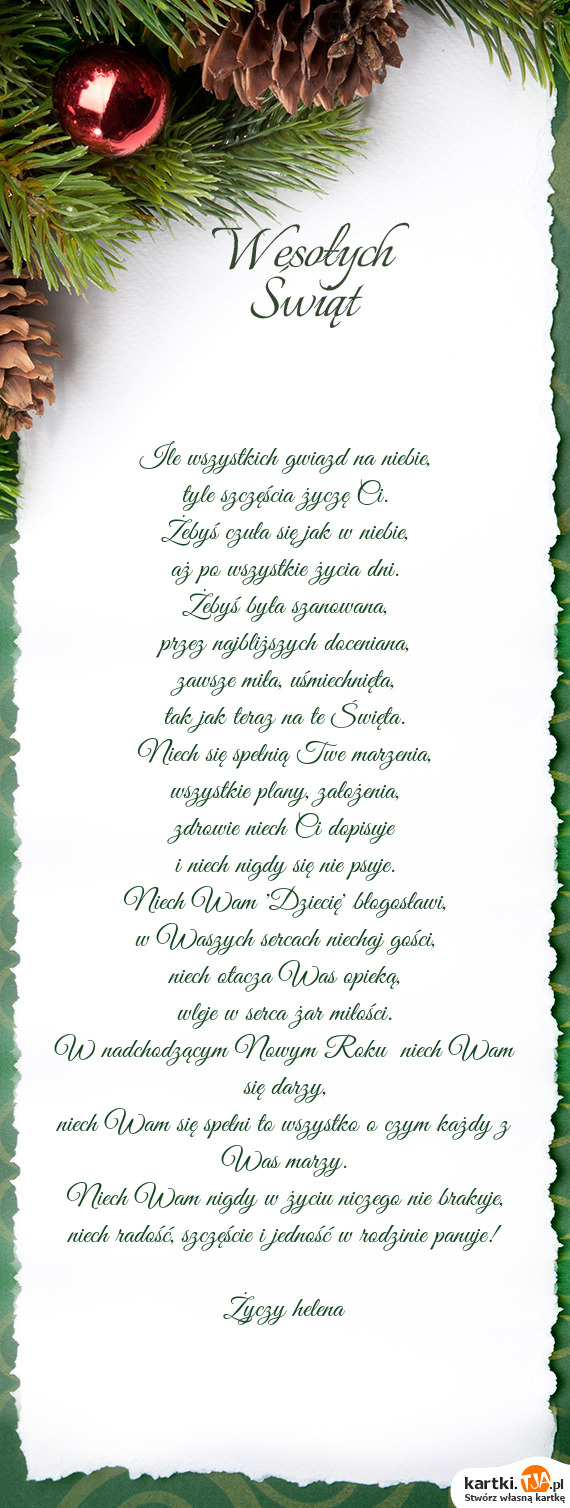 Wesołych
Świąt
Ile wszystkich gwiazd na niebie,
tyle szczęścia życzę Ci.
Żebyś czuła się jak w niebie,
aż po wszystkie życia dni.
Żebyś była szanowana,
przez najbliższych doceniana,
zawsze miła, uśmiechnięta,
tak jak teraz na te Święta.
Niech się spełnią Twe marzenia,
wszystkie plany, założenia,
zdrowie niech Ci dopisuje
i niech nigdy się nie psuje.
Niech Wam 'Dziecię' błogosławi,
w Waszych sercach niechaj gości,
niech otacza Was opieką,
wleje w serca żar miłości.
W nadchodzącym Nowym Roku niech Wam
się darzy,
niech Wam się spełni to wszystko o czym każdy z
Was marzy.
Niech Wam nigdy w życiu niczego nie brakuje,
niech radość, szczęście i jedność w rodzinie panuje!
Życzy helena
kartki.TJA.pl
Stwórz własną kartkę